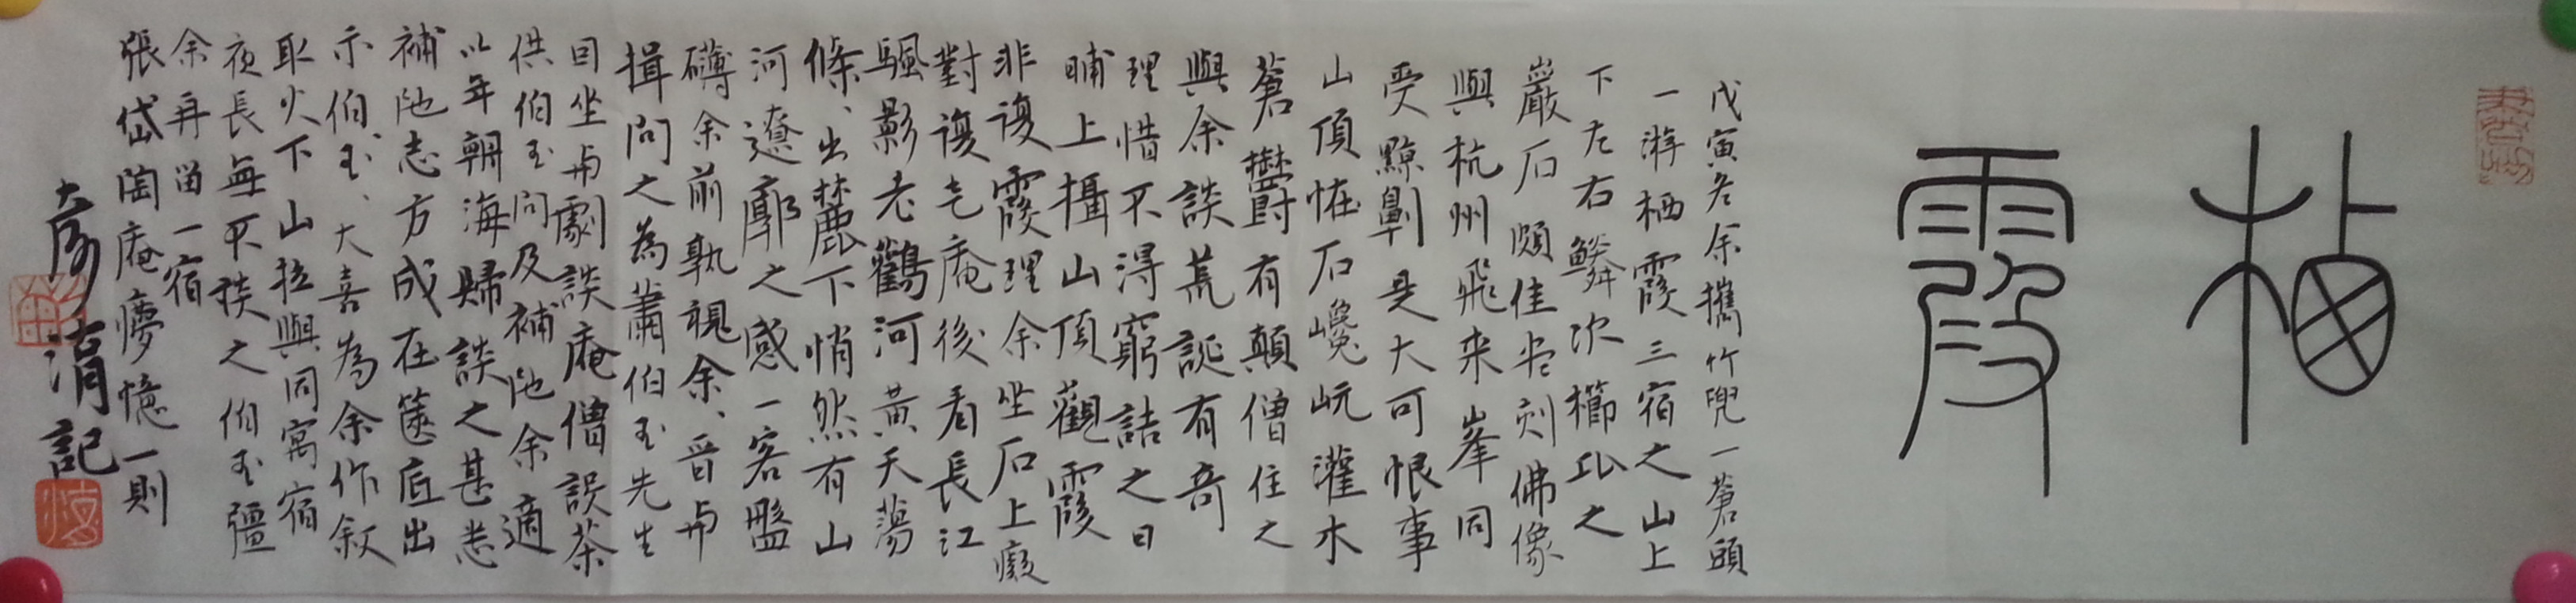 栖霞
戊寅冬余攜竹兜一蒼頭
一游栖霞三宿之山上
下左右鱗次櫛比之
巖石頗佳盡刻佛像
與杭州飛来峯同
受黥劓是大可恨事
山頂怪石巉岏灌木
蒼鬱有顛僧住之
與余談荒誕有奇
理惜不得窮詰之日
晡上攝山頂觀霞
非復霞理余坐石上癡
對復走庵後看長江
颿影老鸛河黃天蕩
條、出麓下悄然有山
河遼廓之感一客盤
礴余前孰視余、晋与
揖問之為蕭伯玉先生
因坐与劇談庵僧設茶
供伯玉问及補陁余適
以年朝海歸談之甚悉
補陁志方成在篋底出
示伯玉、大喜為余作叙
取火下山拉與同寓宿
夜長無不談之伯玉彊
余再留一宿
張岱陶庵夢憶一則
記